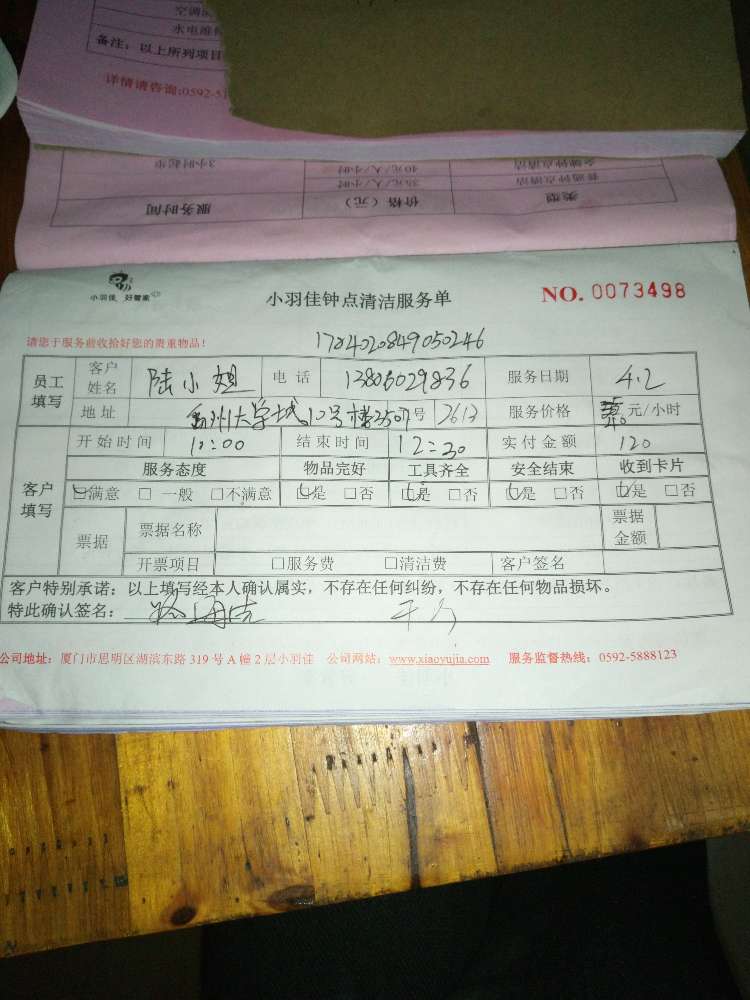 空调
水电维修
备注：以上所列项目
详情请咨询:0592-51
3小时起步 40元/人/小时 全城钟点清洁
35元/人/小时 普通钟点清洁
服务时间 价格（元） 类型
小羽佳 好管家
小羽佳钟点清洁服务单 NO. 0073498
请您于服务前收拾好您的贵重物品！ 1784020849050246
员工填写 客户姓名 陆小姐 电话 13806029836 服务日期 4.2
地址 大学城 10号楼2507号 2613 服务价格 元/小时
客户填写 开始时间 10:00 结束时间 12:30 实付金额 120
服务态度 物品完好 工具齐全 安全结束 收到卡片
☑满意 □一般 □不满意 ☑是 □否 ☑是 □否 ☑是 □否 ☑是 □否
票据 票据名称 票据金额
开票项目 □服务费 □清洁费 客户签名
客户特别承诺：以上填写经本人确认属实，不存在任何纠纷，不存在任何物品损坏。
特此确认签名：
公司地址：厦门市思明区湖滨东路 319 号 A 幢 2 层小羽佳 公司网站：www.xiaoyujia.com 服务监督热线：0592-5888123